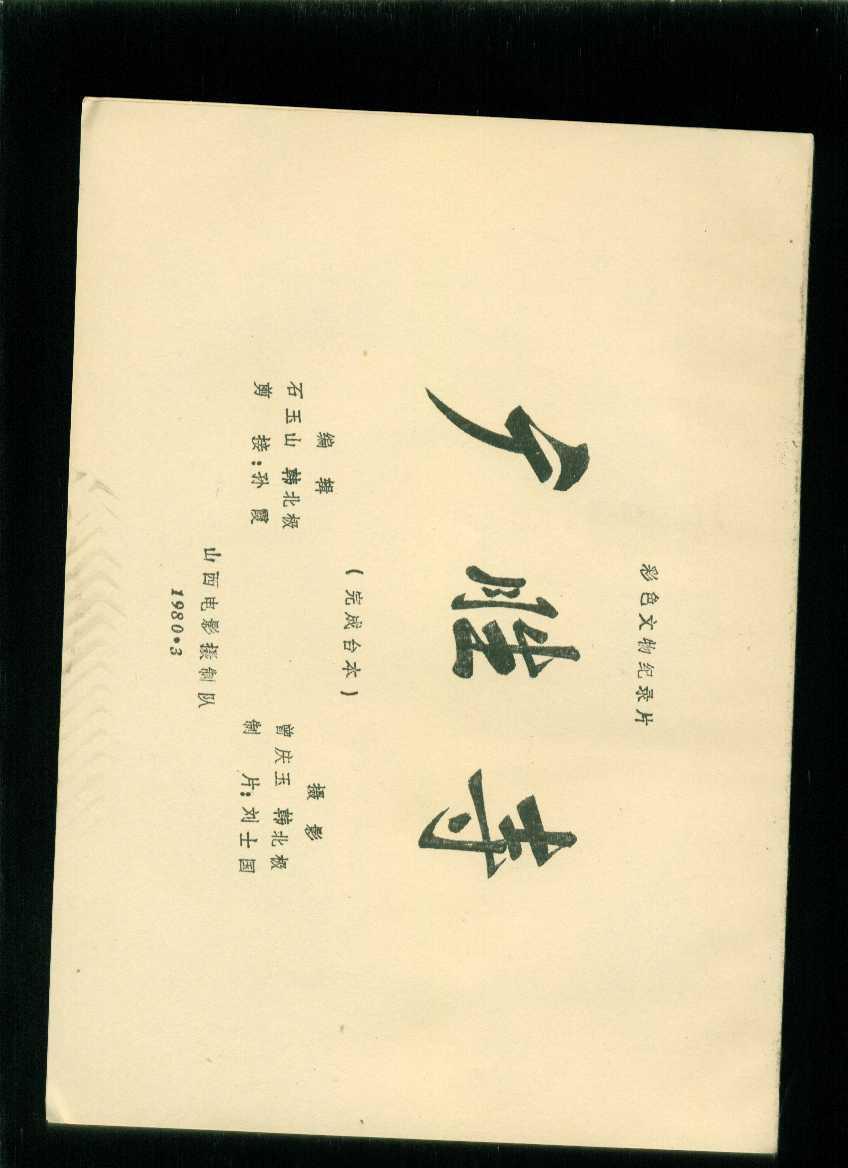 彩色文物纪录片
广胜寺
（完成台本）
编辑
石玉山 韩北极
剪接：孙霞
摄影
曾庆玉 韩北极
制片：刘士国
山西电影摄制队
1980·3